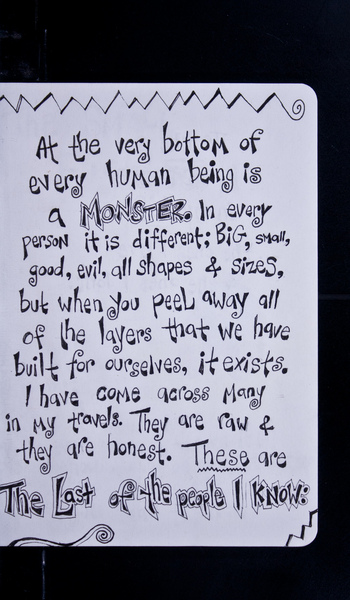 At the very bottom of
every human being is
a MONSTER. In every
person it is different; BIG, small,
good, evil, all shapes & sizes,
but when you peel away all
of the layers that we have
built for ourselves, it exists.
I have come across many
in my travels. They are raw &
they are honest. These are
The Last of the people I know: